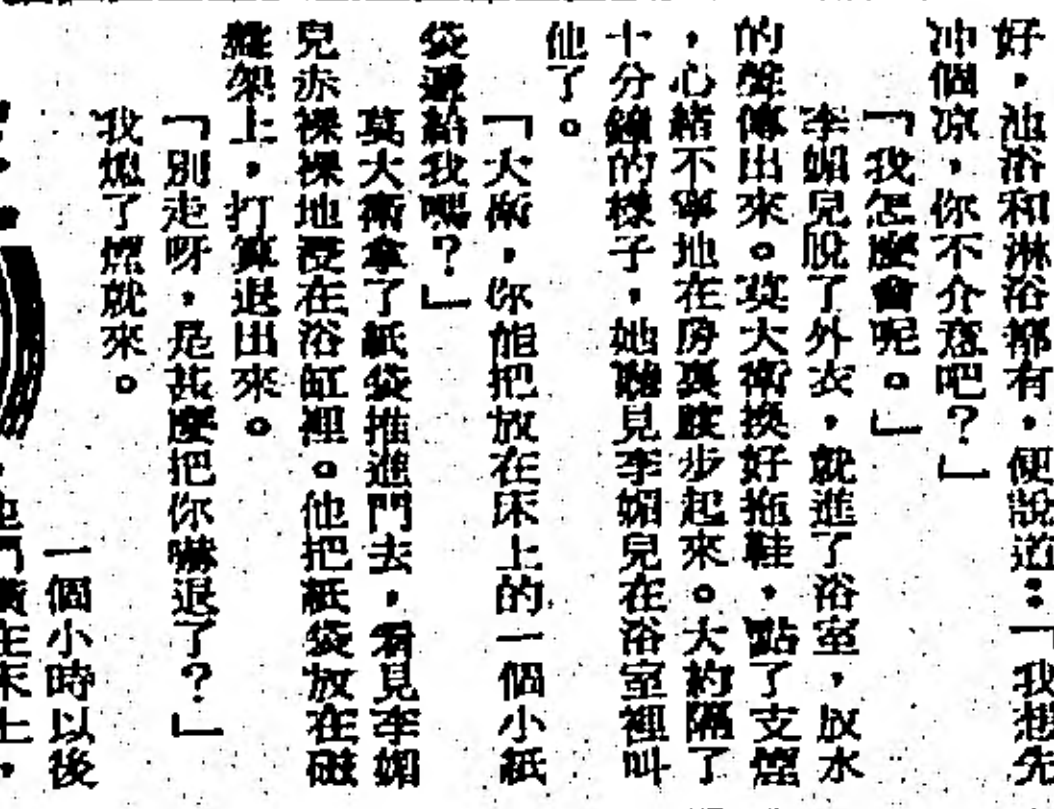 好，池浴和淋浴都有，便說道：「我想先
冲個凉，你不介意吧？」
「我怎麼會呢。」
李媚兒脫了外衣，就進了浴室，放水
的聲傳出來。莫大衛換好拖鞋，點了支煙
，心緒不寧地在房裏踱步起來。大約隔了
十分鐘的樣子，她聽見李媚兒在浴室裡叫
他了。
「大衛，你能把放在床上的一個小紙
袋遞給我嗎？」
莫大衛拿了紙袋推進門去，看見李媚
兒赤裸裸地浸在浴缸裡。他把紙袋放在磁
架上，打算退出來。
「別走呀，是甚麼把你嚇退了？」
我熄了煙就來。
一個小時以後
，他們橫在床上，